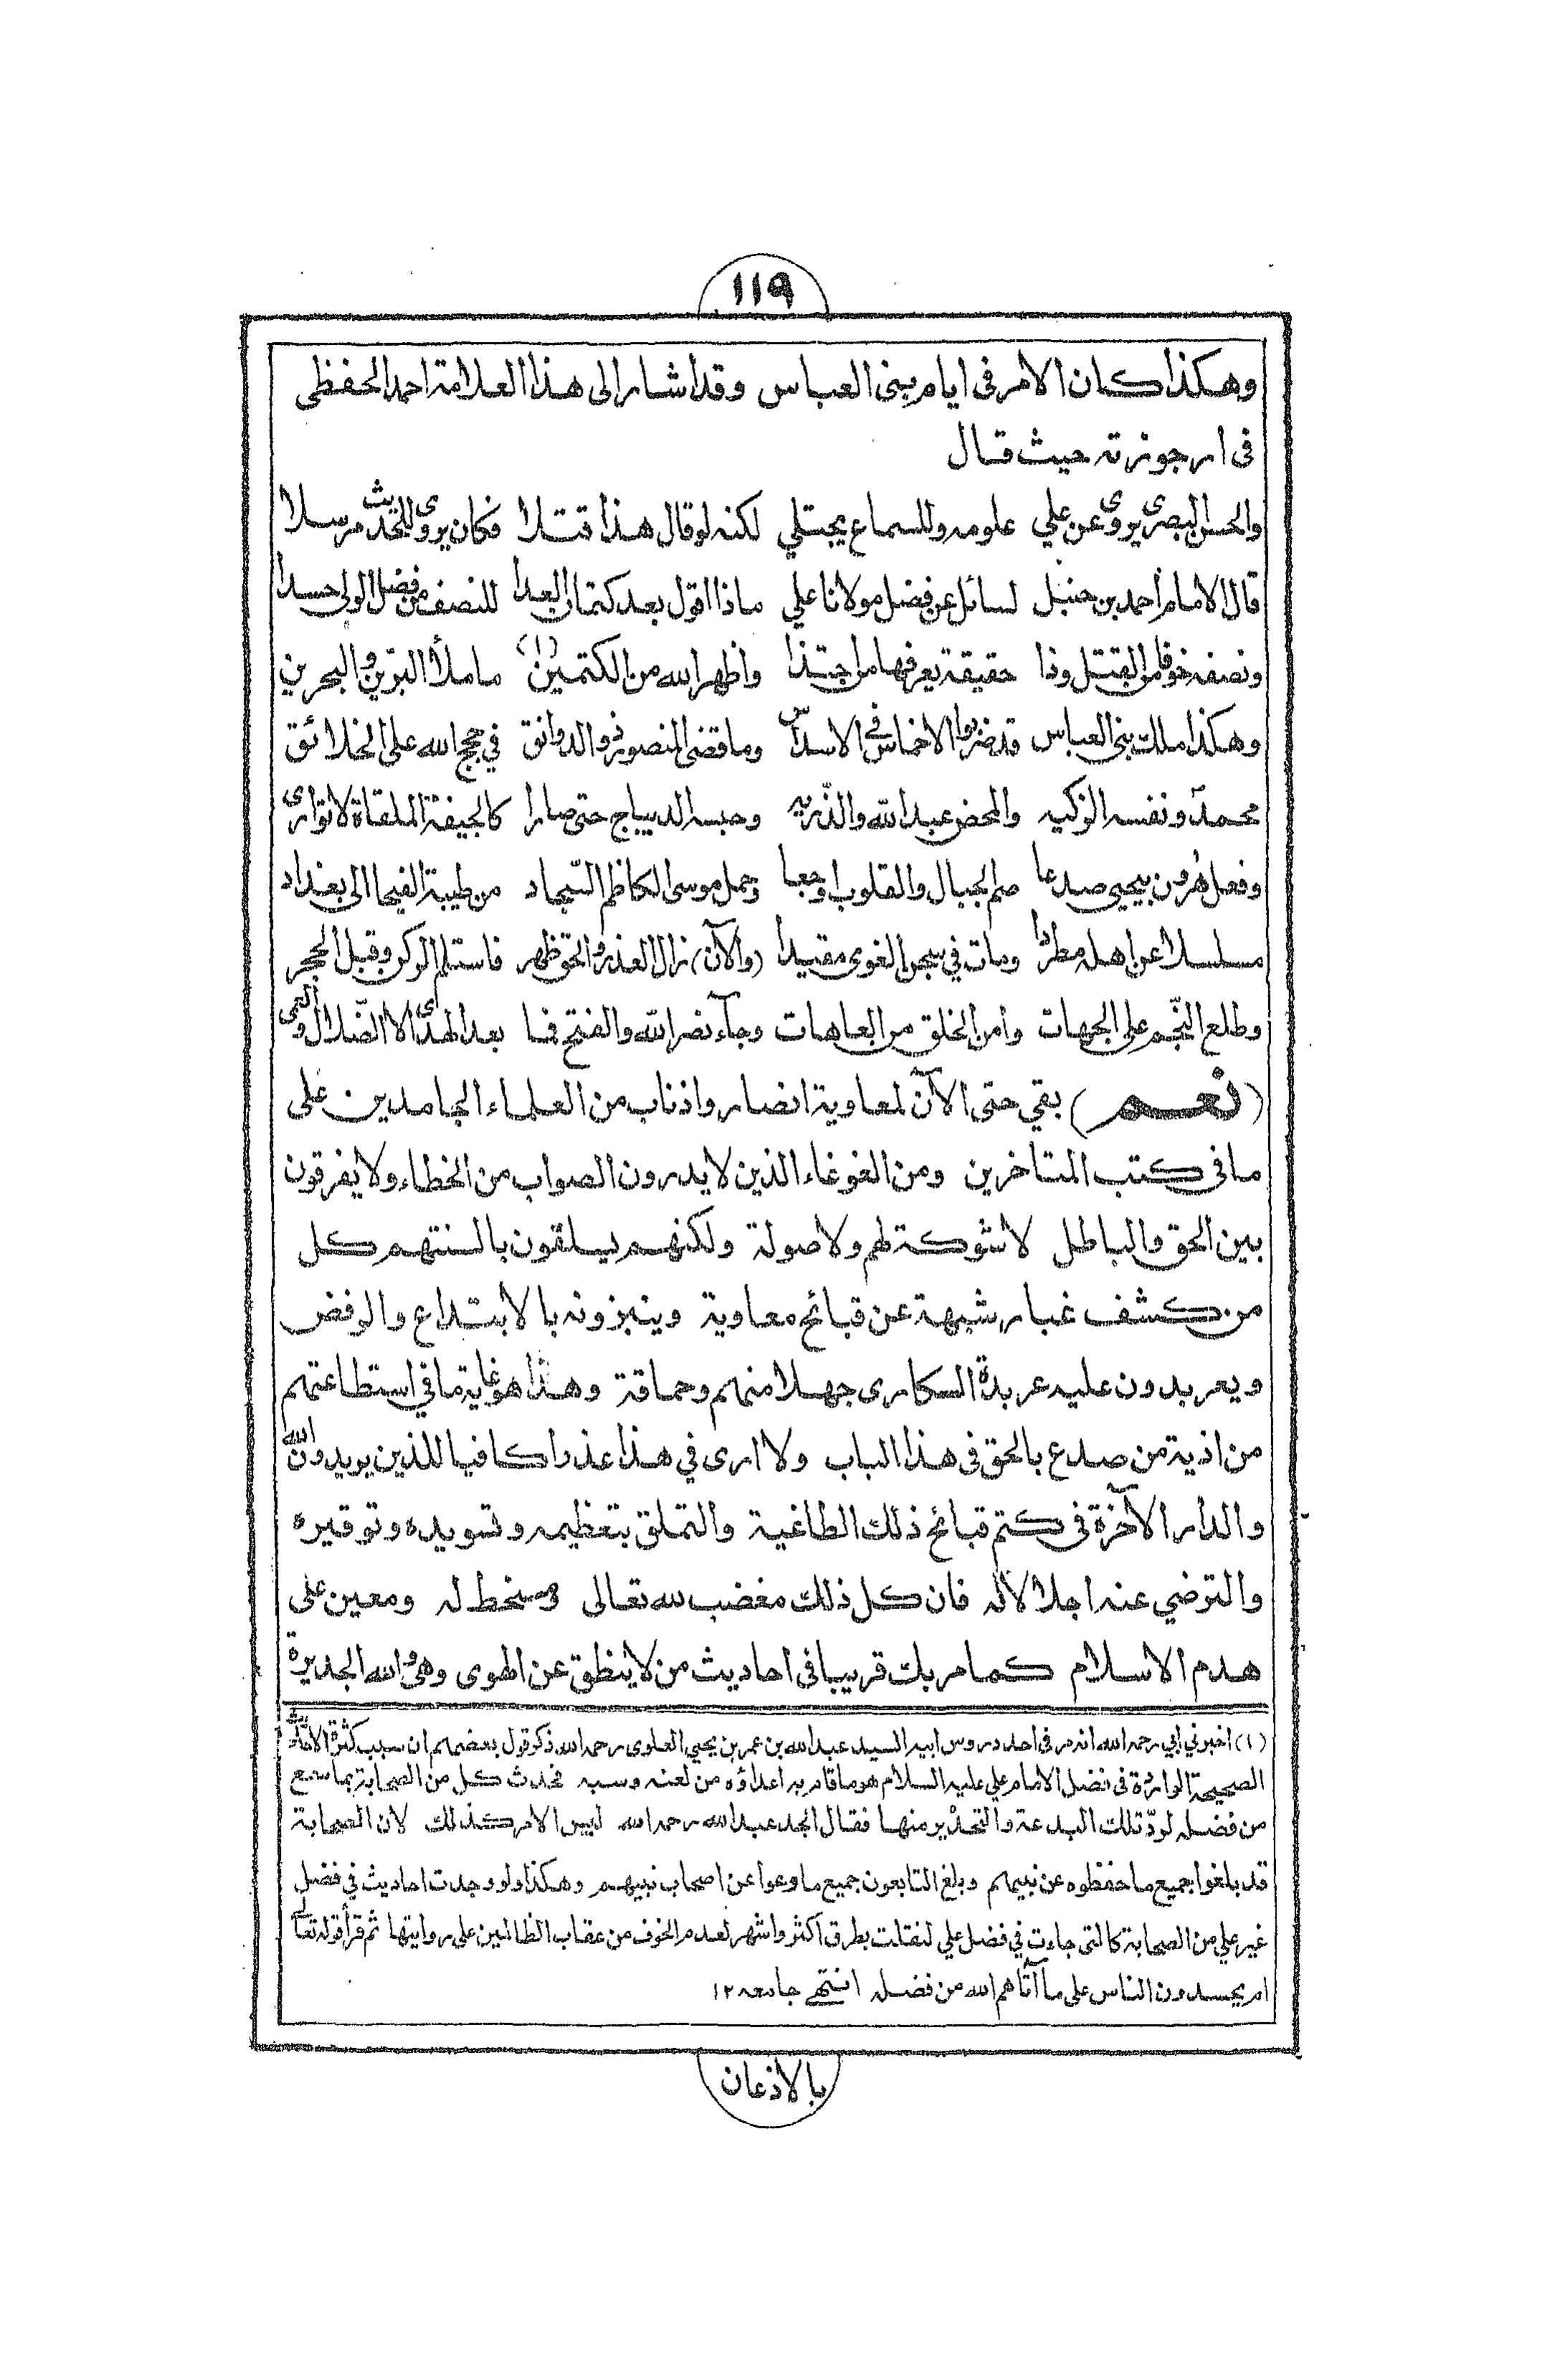 ١١٩
وهكذا كان الامر فى ايام بنى العباس وقد اشار الى هذا العلامة احمد الحفظى
فى ارجوزته حيث قال
والحسن البصرى يروى عن علي علومه وللسماع يجتلي لكنه لو قال هذا قتلا فكان يروى للحديث مرسلا
قال الامام احمد بن حنبل لسائل عن فضل مولانا علي ماذا اقول بعد كتمان العدا للنصف من فضل الولى حسدا
ونصفه خوفا من القتل وذا حقيقة يعرفها من احتذا واظهر الله من الكتمين (١) ما ملأ البرّين والبحرين
وهكذا ملك بنى العباس قد ضربوا الاخماس في الاسداس وما قضى المنصور ذو الدوانق في حجج الله على الخلائق
محمدّ ونفسه الزكيه والمحض عبد الله والذّريه وحبسه الديباج حتى صارا كالجيفة الملقاة لا توارى
وفعل هرون بيحيى صدعا صم الجبال والقلوب اوجعا وحمل موسى الكاظم السّجاد من طيبة الفيحا الى بغداد
مسلسلا عن اهله مطردا ومات في سجن الغوى مقيدا (والآن) زال العذر والحق ظهر فاستلم الركن وقبل الحجر
وطلع النّجم على الجهات وامن الخلق من العاهات وجآء نصر الله والفتح فما بعد الهدى الا الضّلال والعمى
(نعم) بقي حتى الآن لمعاوية انصار واذناب من العلماء الجامدين على
ما فى كتب المتاخرين ومن الغوغاء الذين لا يدرون الصواب من الخطاء ولا يفرقون
بين الحق والباطل لا شوكة لهم ولا صولة ولكنهم يسلقون بالسنتهم كل
من كشف غبار شبهة عن قبائح معاوية وينبزونه بالابتداع والرفض
ويعربدون عليه عربدة السكارى جهلا منهم وحماقة وهذا هو غاية ما في استطاعتهم
من اذية من صدع بالحق فى هذا الباب ولا ارى في هذا عذرا كافيا للذين يريدون الله
والدار الآخرة فى كتم قبائح ذلك الطاغية والتملق بتعظيمه وتسويده وتوقيره
والترضي عنه اجلالا له فان كل ذلك مغضب لله تعالى ومسخط له ومعين على
هدم الاسلام كما مر بك قريبا فى احاديث من لا ينطق عن الهوى وهي والله الجديرة
(١) اخبرني ابي رحمه الله انه مر فى احد دروس ابيه السيد عبد الله بن عمر بن يحيي العلوى رحمه الله ذكر قول بعضهم ان سبب كثرة الاحاديث
الصحيحة الواردة فى فضل الامام علي عليه السلام هو ما قام به اعداؤه من لعنه وسبه فحدث كل من الصحابة بما سمع
من فضله لردّ تلك البدعة والتحذير منها فقال الجد عبد الله رحمه الله ليس الامر كذلك لان الصحابة
قد بلغوا جميع ما حفظوه عن نبيهم وبلغ التابعون جميع ما وعوا عن اصحاب نبيهم وهكذا ولو وجدت احاديث في فضل
غير علي من الصحابة كالتى جاءت في فضل علي لنقلت بطرق اكثر واشهر لعدم الخوف من عقاب الظالمين على روايتها ثم قرأ قوله تعالى
ام يحسدون الناس على ما آتاهم الله من فضله انتهى جامعه ١٢
بالاذعان